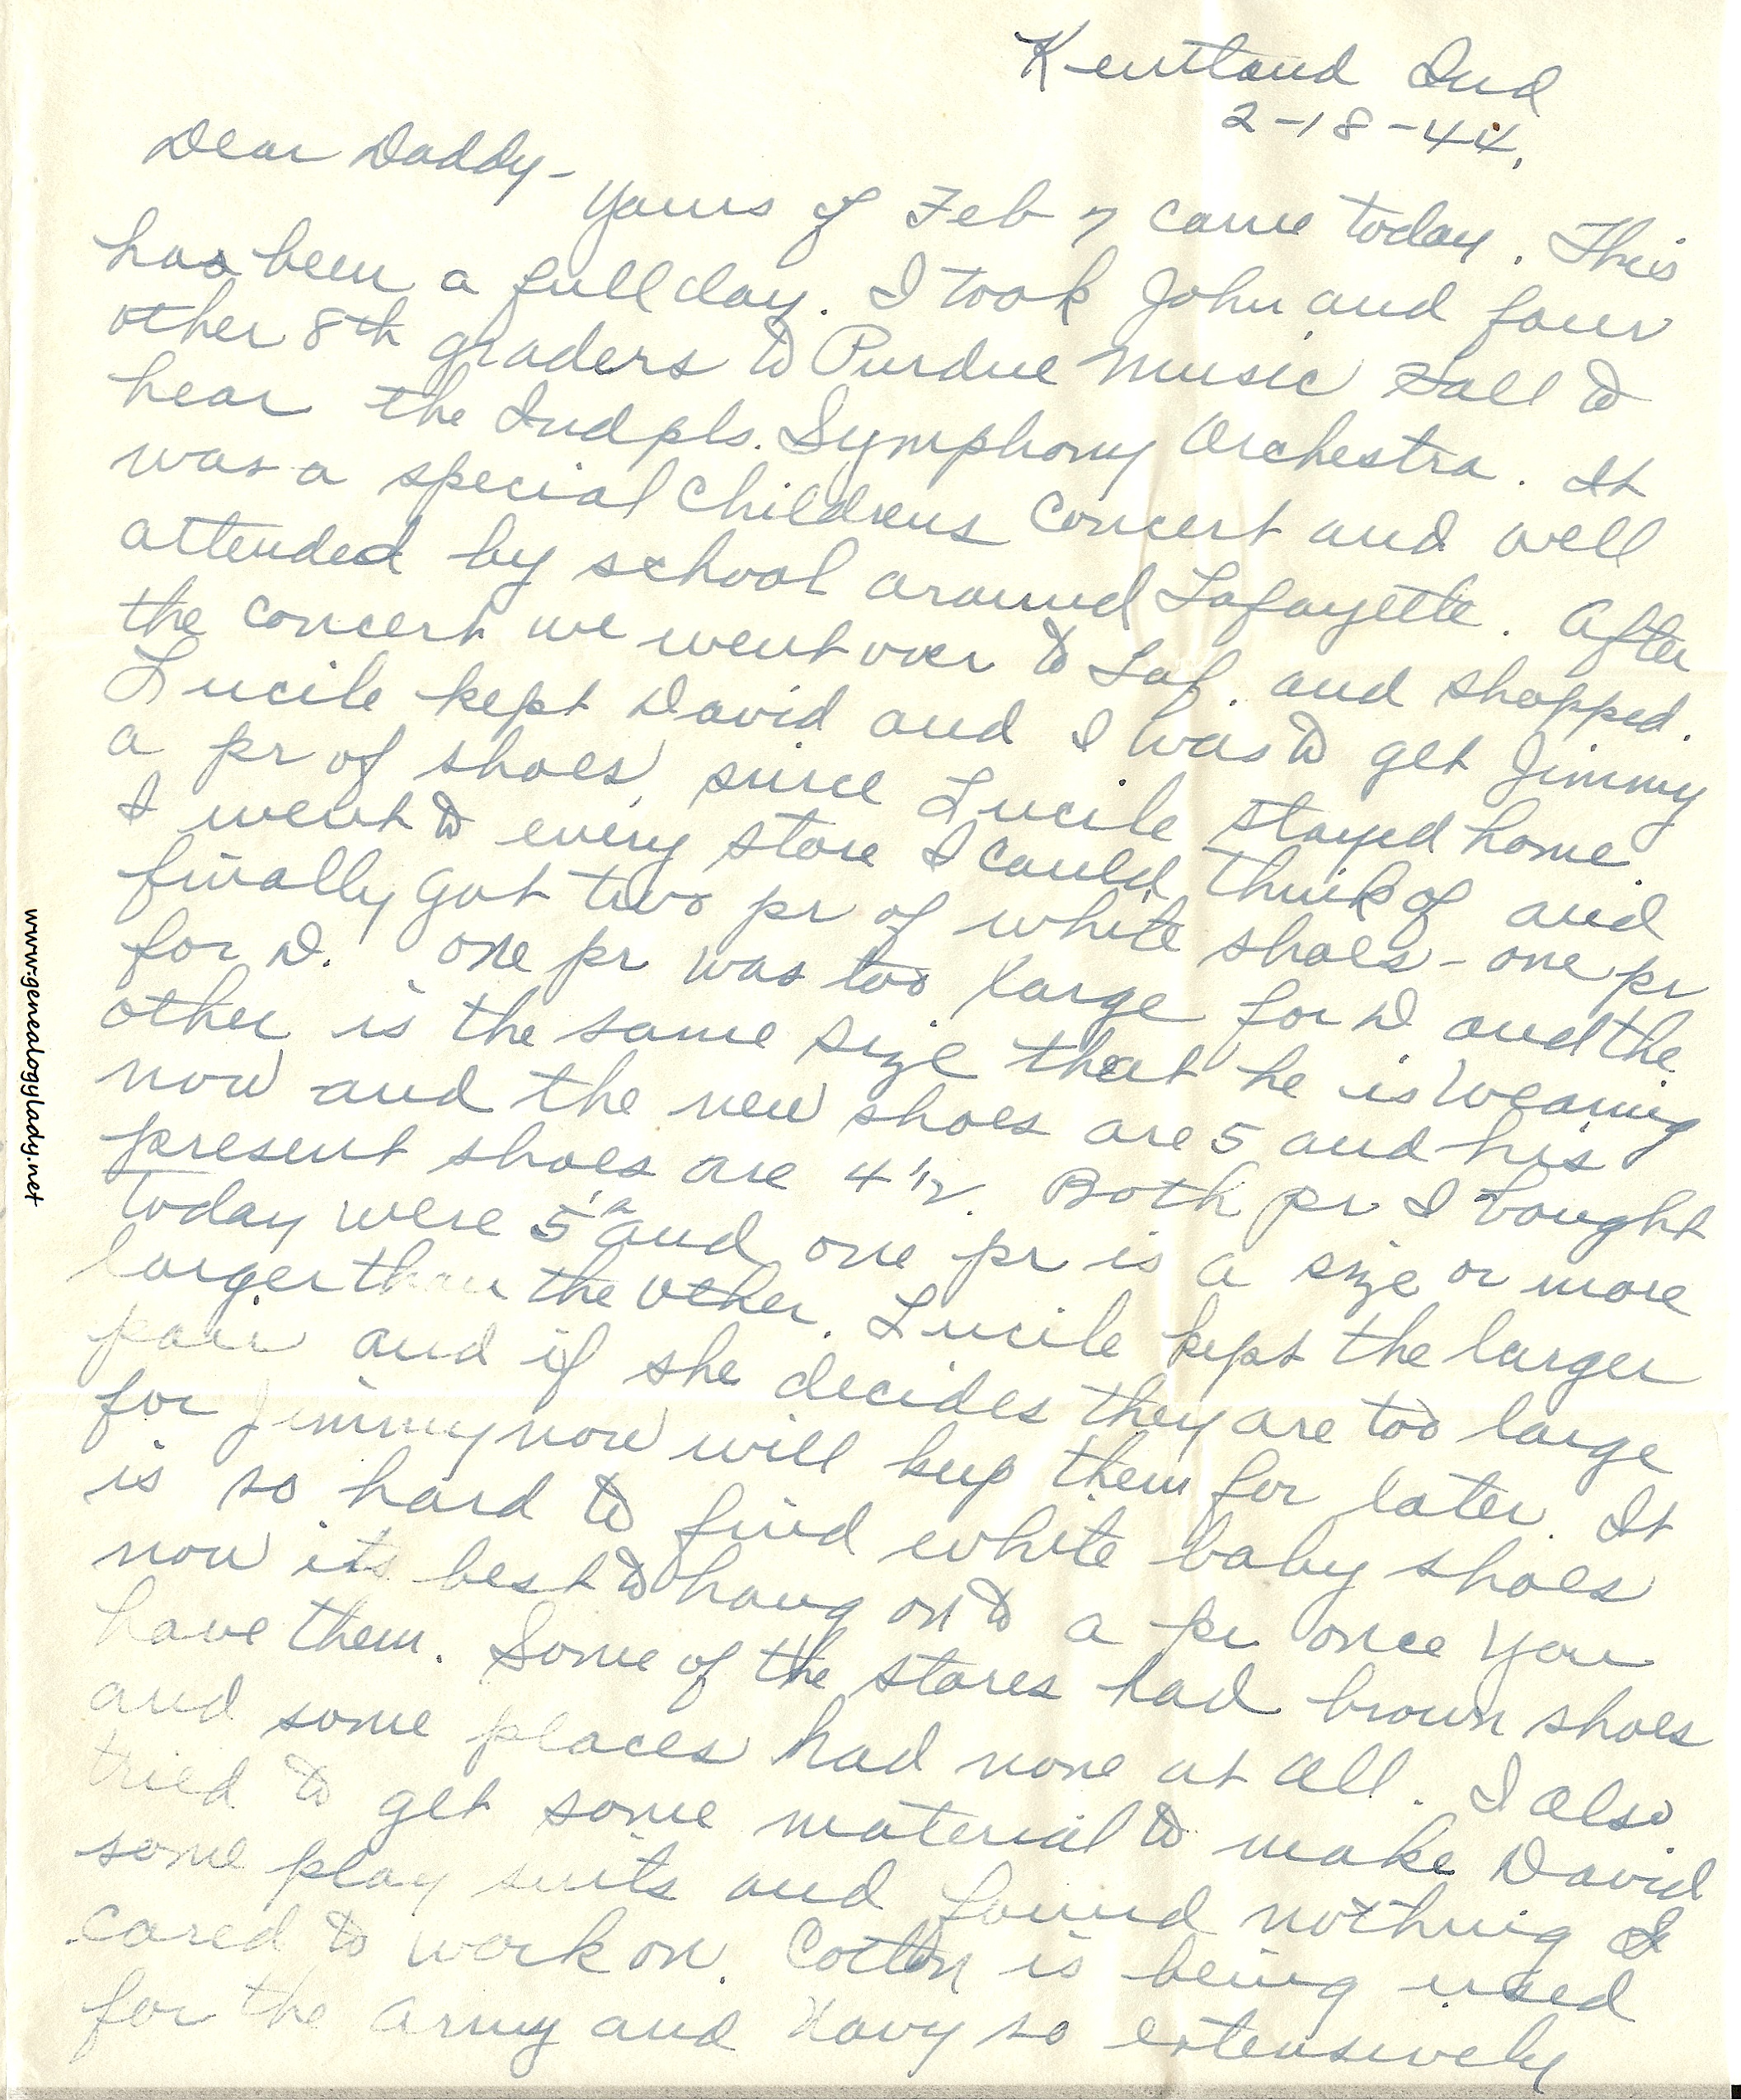 Kentland Ind
2-18-44.
Dear Daddy-
Yours of Feb 7 came today. This
has been a full day. I took John and four
other 8th graders to Purdue Music Hall to
hear the Indpls. Symphony Orchestra. It
was a special childrens concert and well
attended by school around Lafayette. After
the concert we went over to Laf. and shopped.
Lucile kept David and I was to get Jimmy
a pr of shoes, since Lucile stayed home.
I went to every store I could think of and
finally got two pr of white shoes - one pr
for D. One pr was too large for D and the
other is the same size that he is wearing
now and the new shoes are 5 and his
present shoes are 4 1/2. Both pr I bought
today were 5's and one pr is a size or more
larger than the other. Lucile kept the larger
pair and if she decides they are too large
for Jimmy now will keep them for later. It
is so hard to find white baby shoes
now its best to hang on to a pr once you
have them. Some of the stores had brown shoes
and some places had none at all. I also
tried to get some material to make David
some play suits and found nothing I
cared to work on. Cotton is being used
for the Army and Navy so extensively
www.genealogylady.net